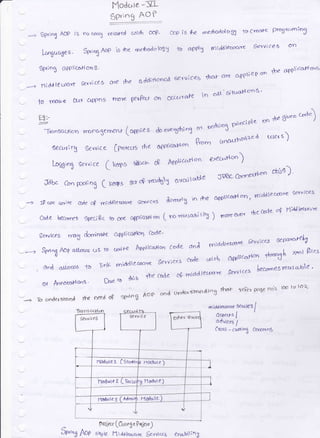 Module - III
Spring AOP
→ Spring AOP is no way related with OOP. OOP is the methodology to create programming
languages. Spring AOP is the methodology to apply middleware services on
Spring applications.
→ Middleware services are the additional services that are applied on the applications,
to make our appns more perfect or accurate in all situations.
Eg:-
Transaction management (applies do everything or nothing principle on the given code)
security service (protects the application from unauthorized users)
Logging service (keeps track of Application execution)
Jdbc Con pooling (keeps set of readily available JDBC Connection objs).
→ If we write code of middleware services directly in the application, middleware services
code becomes specific to one application (no reusability) moreover the code of Middleware
services may dominate application code.
→ Spring AOP allows us to write Application code and middleware services separately
, and allows to link middleware services code with application through xml files
or Annotations. Due to this the code of middleware services becomes reusable.
→ To understand the need of spring AOP and understanding that refer page no's 100 to 102.
Transaction Services
security service
other services
middleware services/
aspects/
advices/
cross-cutting concerns
Module1 (Student Module)
Module2 (Faculty Module)
Module3 (Admin Module)
Project (College Project)
Spring AOP style Middleware Services enabling